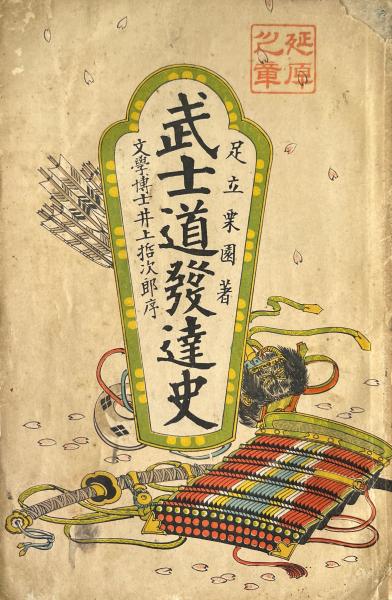 足立栗園著
武士道發達史
文學博士井上哲次郎序
延原
之章